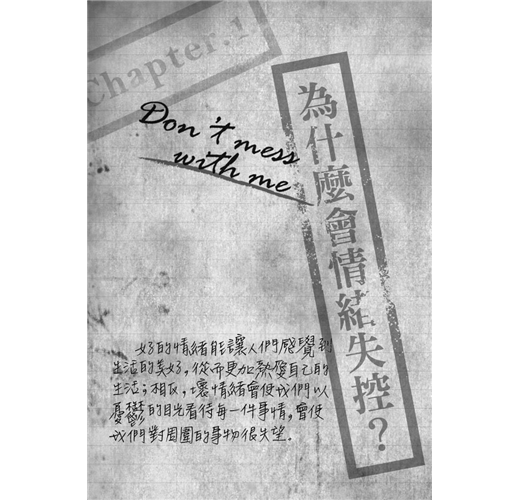 Chapter.1
Don't mess
with me
為什麼會情緒失控？
好的情緒能讓人們感覺到
生活的美好，從而更加熱愛自己的
生活；相反，壞情緒會使我們以
憂鬱的目光看待每一件事情，會使
我們對周圍的事物很失望．